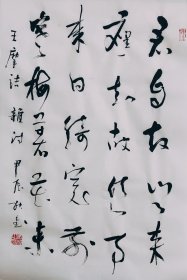 君自故鄉來
應知故鄉事
來日綺窗前
寒梅著花未
王摩詰 雜詩 甲辰